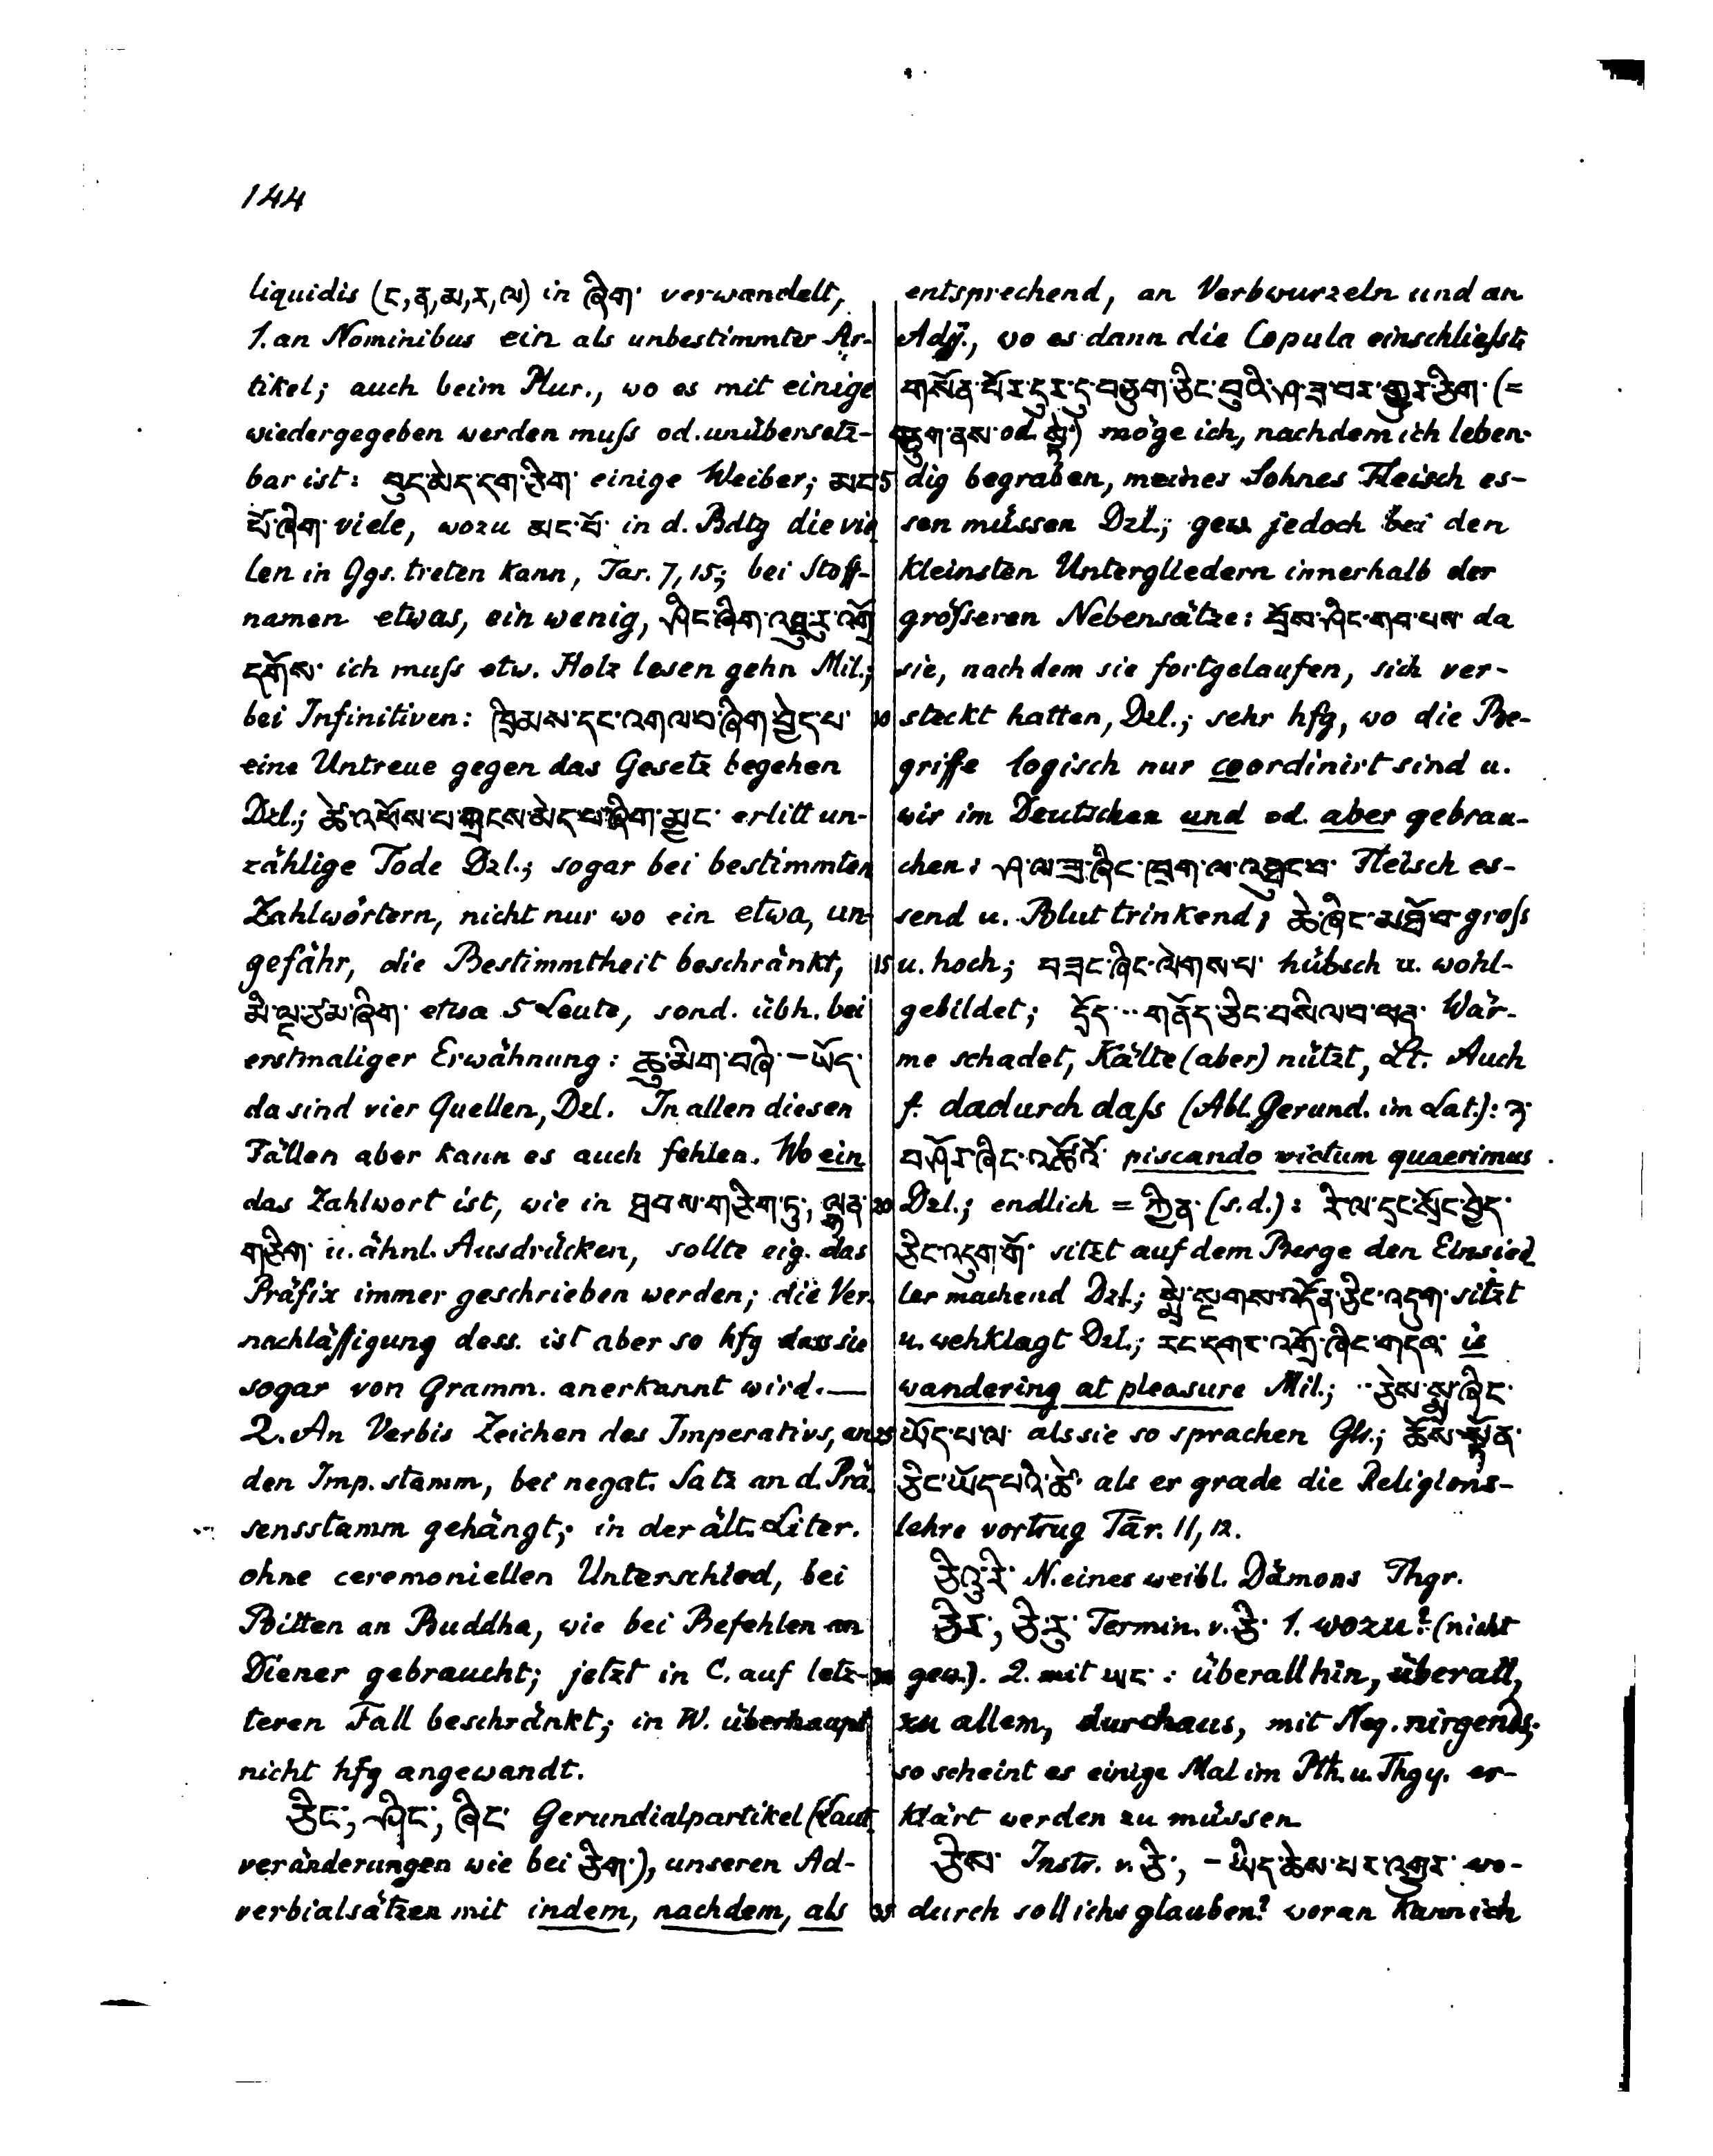 144
liquidis (ང, ན, མ, ར, ལ) in ཞིག་ verwandelt,
1. an Nominibus ein als unbestimmter Ar-
tikel; auch beim Plur., wo es mit einige
wiedergegeben werden muſs od. unübersetz-
bar ist: བུད་མེད་དག་ཅིག་ einige Weiber; མང་
པོ་ཞིག་ viele, wozu མང་པོ་ in d. Bdtg die vie-
len in Ggs. treten kann, Tar. 7, 15; bei Stoff-
namen etwas, ein wenig, ཤིང་ཞིག་འཐུ་རུ་འགྲོ་
དགོས་ ich muſs etw. Holz lesen gehn Mil.;
bei Infinitiven: ཁྲིམས་དང་འགལ་བ་ཞིག་བྱེད་པ་
eine Untreue gegen das Gesetz begehen
Dzl.; ཚེ་འཕོས་པ་གྲངས་མེད་པ་ཞིག་མྱང་ erlitt un-
zählige Tode Dzl.; sogar bei bestimmten
Zahlwörtern, nicht nur wo ein etwa, un-
gefähr, die Bestimmtheit beschränkt,
མི་ལྔ་ཙམ་ཞིག་ etwa 5 Leute, sond. übh. bei
erstmaliger Erwähnung: ཆུ་མིག་བཞི་ – ཡོད་
da sind vier Quellen, Dzl. In allen diesen
Fällen aber kann es auch fehlen. Wo ein
das Zahlwort ist, wie in ཐབས་གཅིག་ཏུ་, ལྷན་
གཅིག་ u. ähnl. Ausdrücken, sollte eig. das
Präfix immer geschrieben werden; die Ver-
nachläſſigung dess. ist aber so hfg dass sie
sogar von Gramm. anerkannt wird. —
2. An Verbis Zeichen des Imperativs, an
den Imp. stamm, bei negat. Satz an d. Prä-
sensstamm gehängt; in der ält. Liter.
ohne ceremoniellen Unterschied, bei
Bitten an Buddha, wie bei Befehlen an
Diener gebraucht; jetzt in C. auf letz-
teren Fall beschränkt; in W. überhaupt
nicht hfg angewandt.
ཅིང་, ཤིང་, ཞིང་ Gerundialpartikel (Laut-
veränderungen wie bei ཅིག་), unseren Ad-
verbialsätzen mit indem, nachdem, als
entsprechend, an Verbwurzeln und an
Adjj., wo es dann die Copula einschlieſst:
གསོན་པོར་དུར་དུ་བཅུག་ཅིང་བུའི་ཤ་ཟ་བར་གྱུར་ཅིག་ (=
བཅུག་ནས་ od. སྟེ་) möge ich, nachdem ich leben-
5 dig begraben, meines Sohnes Fleisch es-
sen müssen Dzl.; gew. jedoch bei den
kleinsten Untergliedern innerhalb der
gröſseren Nebensätze: བྲོས་ཤིང་གབ་པས་ da
sie, nachdem sie fortgelaufen, sich ver-
10 steckt hatten, Dzl.; sehr hfg, wo die Be-
griffe logisch nur coordinirt sind u.
wir im Deutschen und od. aber gebrau-
chen: ཤ་ལ་ཟ་ཞིང་ཁྲག་ལ་འཐུང་བ་ Fleisch es-
send u. Blut trinkend; ཆེ་ཞིང་མཐོ་བ་ groſs
15 u. hoch; བཟང་ཞིང་ལེགས་པ་ hübsch u. wohl-
gebildet; དྲོད་ .. གནོད་ཅིང་བསིལ་བ་ཕན་ Wär-
me schadet, Kälte (aber) nützt, Lt. Auch
f. dadurch daſs (Abl. Gerund. im Lat.): ཉ་
བཤོར་ཞིང་འཚོའོ་ piscando victum quaerimus
20 Dzl.; endlich = ཀྱིན་ (s.d.): རི་ལ་དྲང་སྲོང་བྱེད་
ཅིང་འདུག་གོ་ sitzt auf dem Berge den Einsied-
ler machend Dzl.; སྨྲེ་སྔགས་འདོན་ཅིང་འདུག་ sitzt
u. wehklagt Dzl.; རང་དགར་འགྲོ་ཞིང་གདའ་ is
wandering at pleasure Mil.; .. ཅེས་སྨྲ་ཞིང་
25 ཡོད་པ་ལ་ als sie so sprachen Glr.; ཆོས་སྟོན་
ཅིང་ཡོད་པའི་ཚེ་ als er grade die Religions-
lehre vortrug Tār. 11, 12.
ཅིའུ་རི་ N. eines weibl. Dämons Thgr.
ཅིར་, ཅི་རུ་ Termin. v. ཅི་ 1. wozu? (nicht
30 gew.). 2. mit ཡང་: überall hin, überall,
zu allem, durchaus, mit Neg. nirgends;
so scheint es einige Mal im Pth. u. Thgy. er-
klärt werden zu müssen
ཅིས་ Instr. v. ཅི་, – ཡིད་ཆེས་པར་འགྱུར་ wo-
35 durch soll ichs glauben? woran kann ich